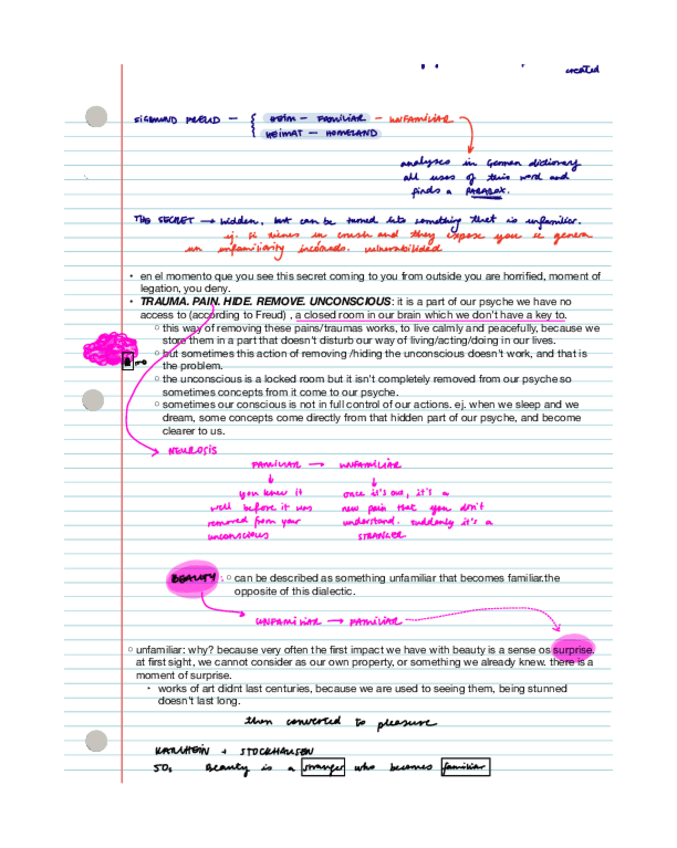 created
SIGMUND FREUD — { HEIM — FAMILIAR — UNFAMILIAR
HEIMAT — HOMELAND
analyses in German dictionary
all uses of this word and
finds a PARADOX.
THE SECRET → hidden, but can be turned into something that is unfamiliar.
ej. si tienes un crush and they expose you se genera
un unfamiliarity incómodo. vulnerabilidad
• en el momento que you see this secret coming to you from outside you are horrified, moment of
legation, you deny.
• TRAUMA. PAIN. HIDE. REMOVE. UNCONSCIOUS: it is a part of our psyche we have no
access to (according to Freud) , a closed room in our brain which we don't have a key to.
○ this way of removing these pains/traumas works, to live calmly and peacefully, because we
store them in a part that doesn't disturb our way of living/acting/doing in our lives.
○ but sometimes this action of removing /hiding the unconscious doesn't work, and that is
the problem.
○ the unconscious is a locked room but it isn't completely removed from our psyche so
sometimes concepts from it come to our psyche.
○ sometimes our conscious is not in full control of our actions. ej. when we sleep and we
dream, some concepts come directly from that hidden part of our psyche, and become
clearer to us.
NEUROSIS
FAMILIAR → UNFAMILIAR
you knew it
well before it was
removed from your
unconscious
once it's out, it's a
new pain that you don't
understand. suddenly it's a
STRANGER
BEAUTY: ○ can be described as something unfamiliar that becomes familiar.the
opposite of this dialectic.
UNFAMILIAR → FAMILIAR
○ unfamiliar: why? because very often the first impact we have with beauty is a sense os surprise.
at first sight, we cannot consider as our own property, or something we already knew. there is a
moment of surprise.
• works of art didnt last centuries, because we are used to seeing them, being stunned
doesn't last long.
then converted to pleasure
KARLHEIN + STOCKHAUSEN
50s Beauty is a stranger who becomes familiar